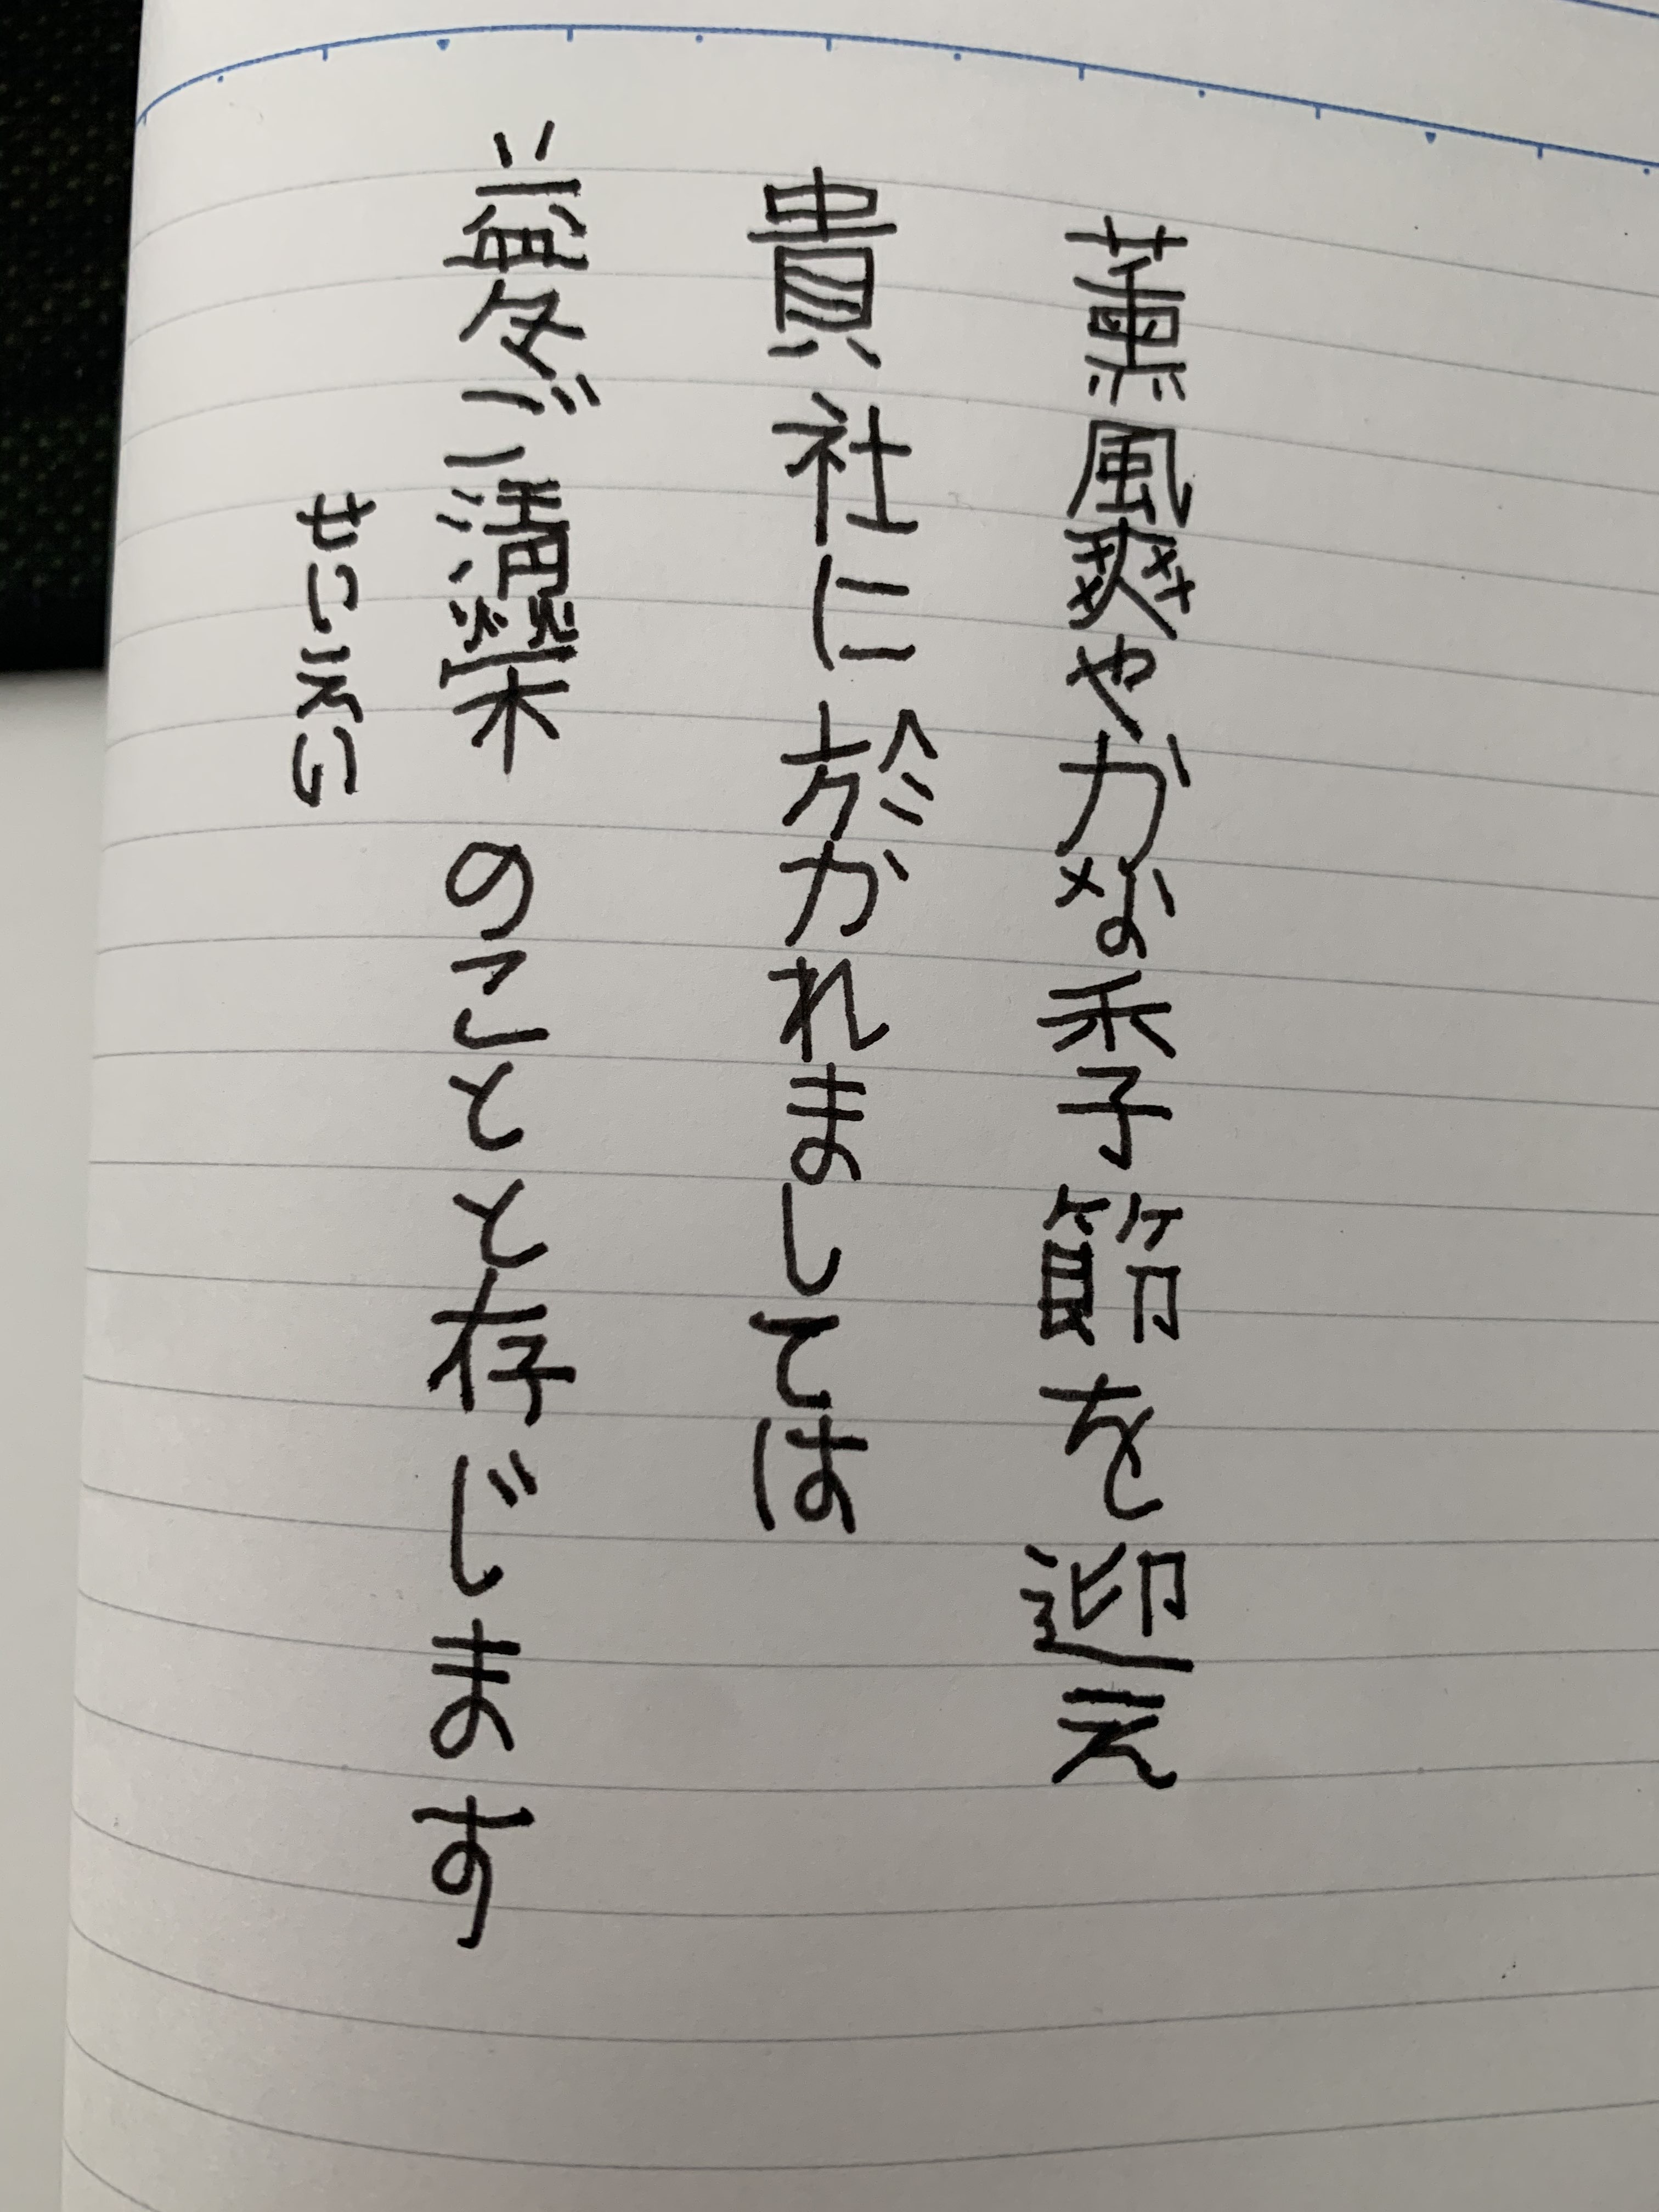 薫風爽やかな季節を迎え
貴社に於かれましては
益々ご清栄のことと存じます
せいえい